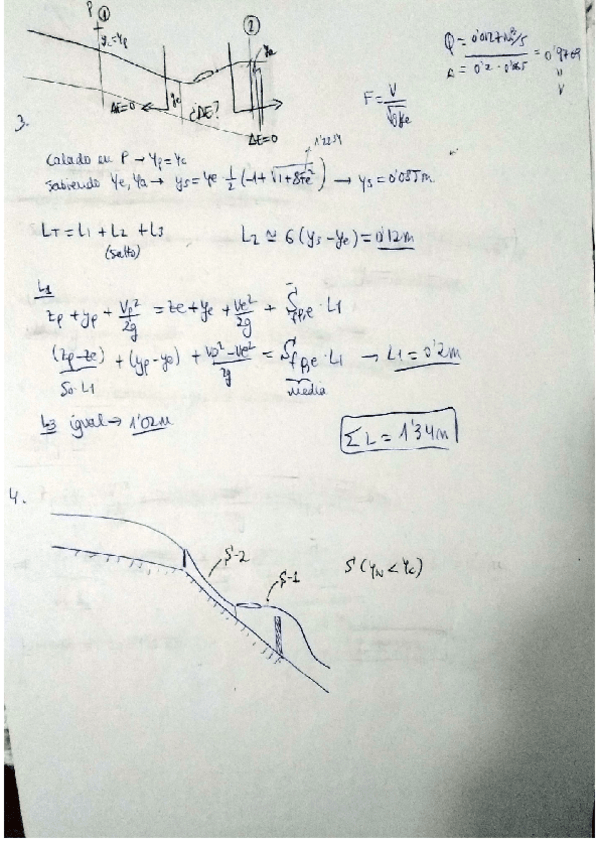 P ① ②
y_c=y_p
y_a
Q = 0'0127 m³/s
A = 0'2 · 0'065 = 0'9769
"
V
ΔE=0 y_e ¿ΔE?
ΔE=0
F = V/√(g y_e)
3.
1'2234
Calado en P → y_p = y_c
Sabiendo y_e, y_a → y_s = y_e · 1/2 (-1+√(1+8F_e²)) → y_s = 0'085 m.
L_T = L_1 + L_2 + L_3 L_2 ≃ 6 (y_s - y_e) = 0'12m
(salto)
L_1
z_p + y_p + V_p²/2g = z_e + y_e + V_e²/2g + S_f p,e · L_1
(z_p - z_e) + (y_p - y_e) + (V_p² - V_e²)/2g = S_f p,e · L_1 → L_1 = 0'2m
S_0·L_1 media
L_3 igual → 1'02m
ΣL = 1'34m
4.
S-2
S-1 S (y_N < y_c)